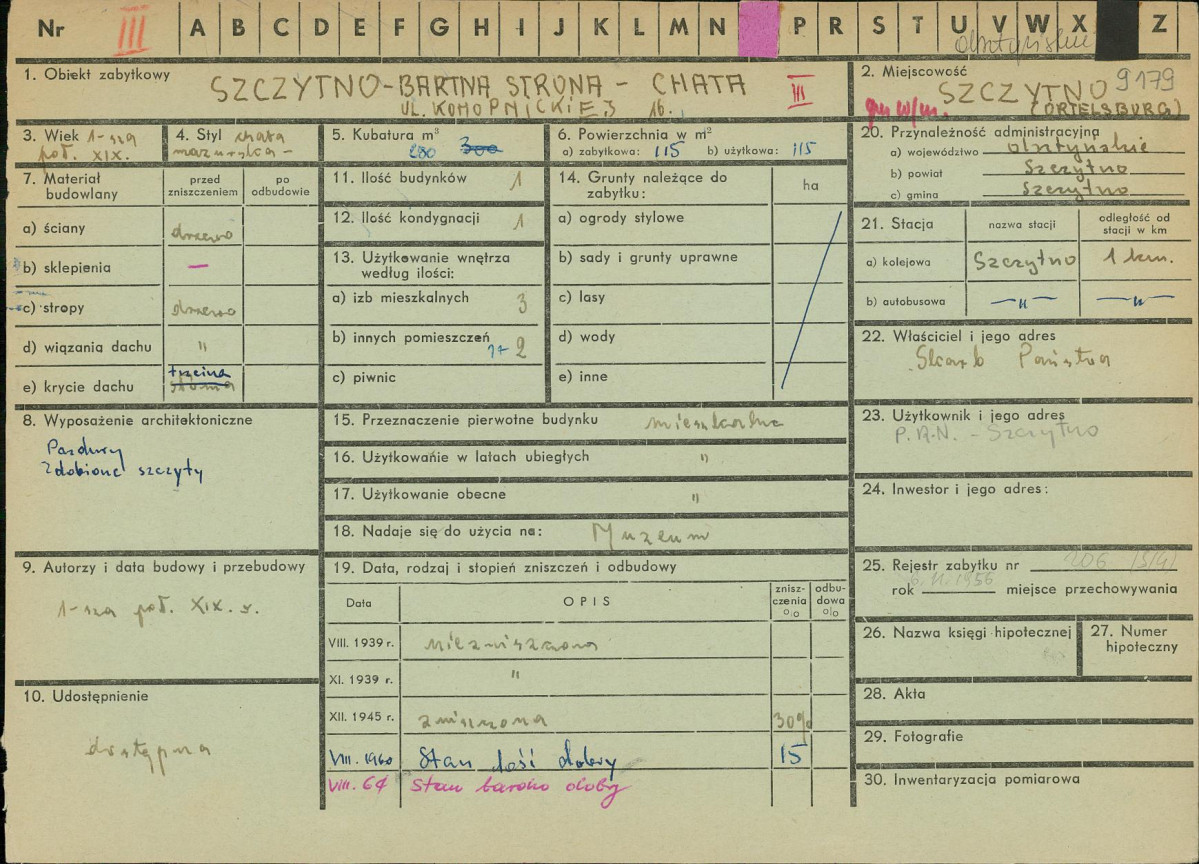 Nr III A B C D E F G H I J K L M N P R S T U V W X Z
olsztyńskie
1. Obiekt zabytkowy
SZCZYTNO-BARTNA STRONA - CHATA III
UL. KONOPNICKIEJ 16.
2. Miejscowość
9179
SZCZYTNO
(ORTELSBURG)
3. Wiek 1-sza
poł. XIX.
4. Styl chata
mazurska -
5. Kubatura m³
280 300
6. Powierzchnia w m²
a) zabytkowa: 115 b) użytkowa: 115
20. Przynależność administracyjna
a) województwo olsztyńskie
b) powiat Szczytno
c) gmina Szczytno
7. Materiał budowlany
przed zniszczeniem
po odbudowie
a) ściany drzewo
b) sklepienia —
c) stropy drzewo
d) wiązania dachu "
e) krycie dachu trzcina
słoma
11. Ilość budynków 1
12. Ilość kondygnacji 1
13. Użytkowanie wnętrza
według ilości:
a) izb mieszkalnych 3
b) innych pomieszczeń 1+2
c) piwnic
14. Grunty należące do
zabytku:
ha
a) ogrody stylowe
b) sady i grunty uprawne
c) lasy
d) wody
e) inne
21. Stacja
nazwa stacji
odległość od
stacji w km
a) kolejowa Szczytno 1 km.
b) autobusowa —"— —"—
22. Właściciel i jego adres
Skarb Państwa
23. Użytkownik i jego adres
P.R.N. - Szczytno
24. Inwestor i jego adres:
8. Wyposażenie architektoniczne
Pazdury
Zdobione szczyty
15. Przeznaczenie pierwotne budynku mieszkalne
16. Użytkowanie w latach ubiegłych "
17. Użytkowanie obecne "
18. Nadaje się do użycia na: Muzeum
9. Autorzy i data budowy i przebudowy
1-sza poł. XIX. w.
10. Udostępnienie
dostępna
19. Data, rodzaj i stopień zniszczeń i odbudowy
Data
OPIS
znisz-
czenia
o/o
odbu-
dowa
o/o
VIII. 1939 r. niezniszczona
XI. 1939 r. "
XII. 1945 r. zniszczona 30%
VIII. 1960 Stan dość dobry 15
VIII. 64 Stan bardzo dobry
25. Rejestr zabytku nr 206
6.XI.1956
rok miejsce przechowywania
26. Nazwa księgi hipotecznej
27. Numer
hipoteczny
28. Akta
29. Fotografie
30. Inwentaryzacja pomiarowa